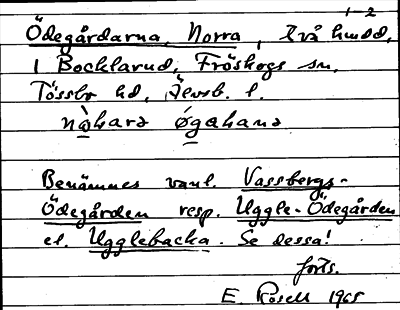 1-2
Ödegårdarna, Norra, Två hmdd,
i Bocklarud, Fröskogs sn,
Tössbo hd, Älvsb. l.
Benämnes vanl. Vassbergs-
Ödegården resp. Uggle-Ödegården
el. Ugglebacka. Se dessa!
forts.
E. Rosell 1965